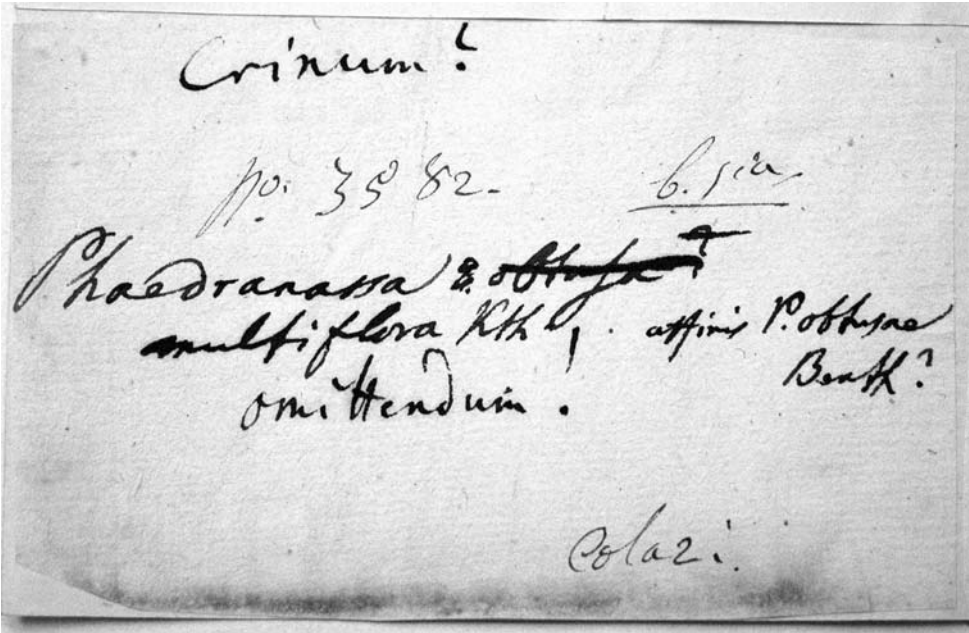 Crinum?
no. 3582. b. sia
Phaedranassa obtusa?
multiflora Kth, affinis P. obtusae
Benth?
omittendum.
Colazi.